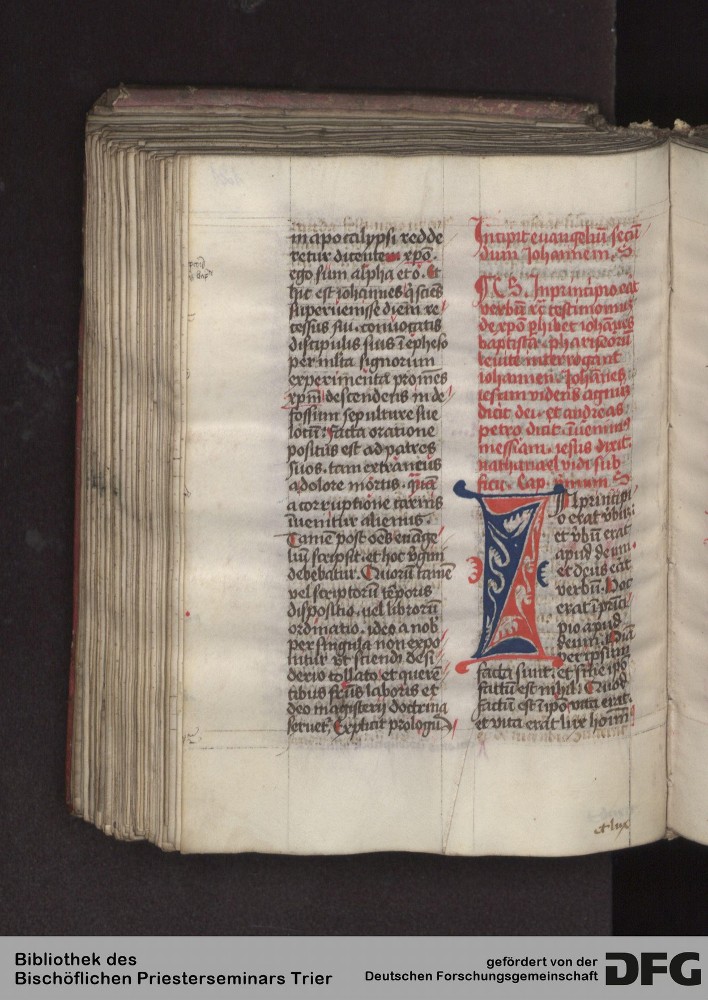 in apocalipsi redde
retur dicente xpō.
ego sum alpha et o. Et
hic est iohannes q̄ sciēs
supervenisse diem re
cessus sui. convocatis
discipulis suis ī epheso
per mlta signorum
experimenta promēs
xpm descendens in de
fossum sepulture sue
locū. facta oratione
positus est ad patres
suos. tam extraneus
a dolore mortis. quā
a corruptione carnis
īvenitur alienus.
Tamē post oēs evāge
liū scripsit. et hoc v̄gini
debebatur. Quorū tamē
vel scriptorū tēporis
dispositio. vel librorū
ordinatio. ideo a nob
per singula non expo
nitur. ut sciendi desi
derio collato et querē
tibus fruc̄us laboris et
deo magisterij doctrina
servet. Explicit prologus
Incipit evangeliū secū
dum Iohannem. S
In principio erat
verbū
de xpō phibet iohānes
baptista. phariseorū
levite interrogant
iohannem. Iohānes
iesum videns agnus
dicit dei. et andreas
petro dicit. īvenim⁹
messiam. iesus dixit.
nathanael vidi sub
ficu. Cap. primum. S
IN principi
o erat v̄bū.
et v̄bū erat
apud deum.
et deus erat
verbū. Hoc
erat ī prīci
pio apud
deum. Oīa
per ipsum
facta sunt. et sine ipō
factū est nihil. Quod
factū est ī ipō vita erat.
et vita erat lux homī
et lux
Bibliothek des
Bischöflichen Priesterseminars Trier
gefördert von der
Deutschen Forschungsgemeinschaft
DFG